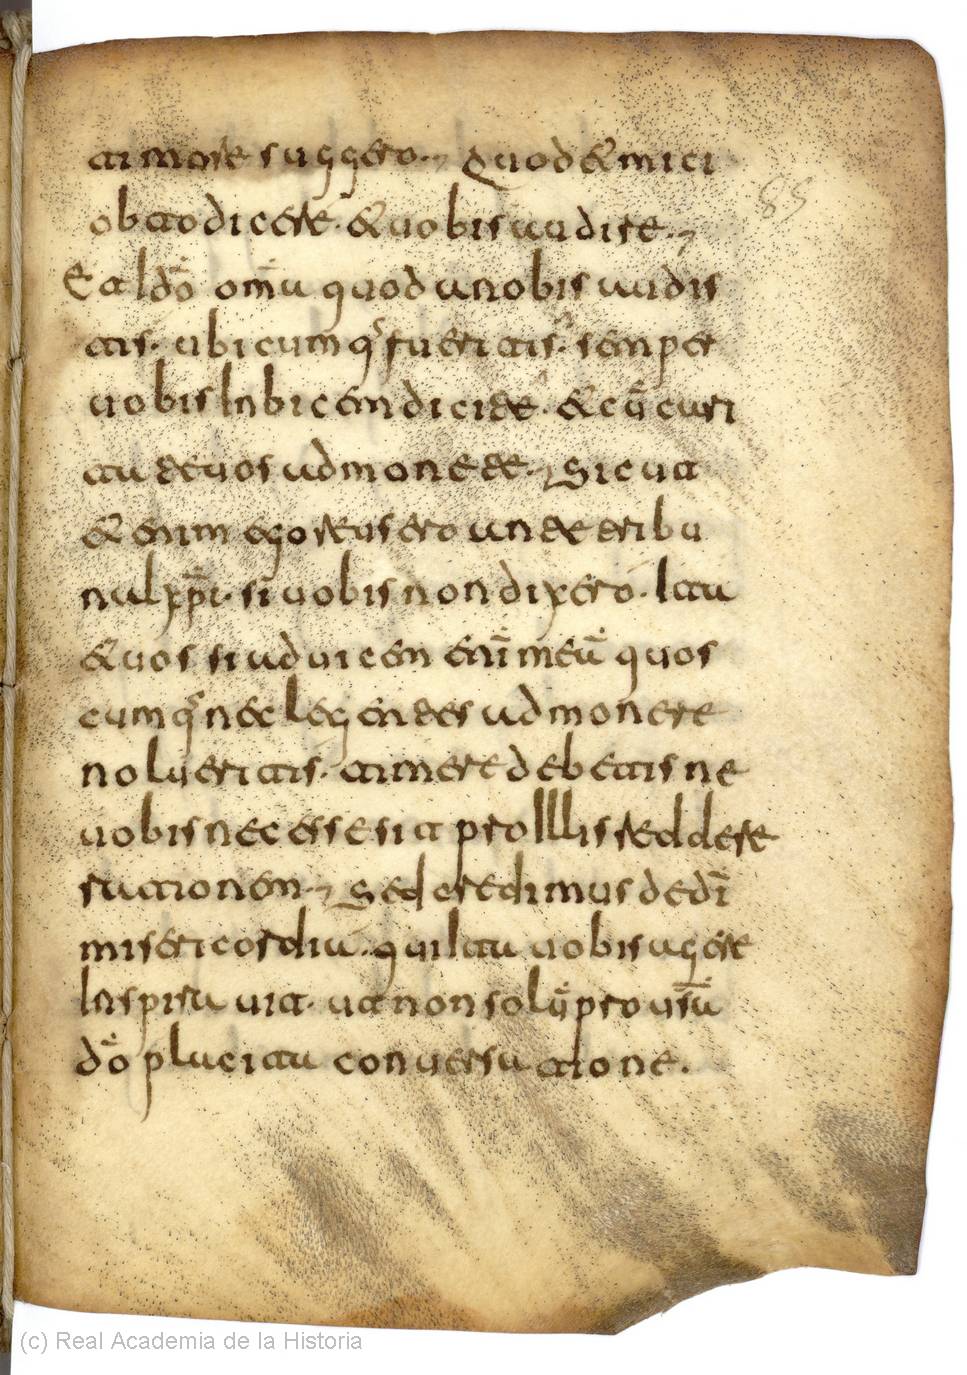 timore suggero. Quod et mici
obtto dicere. et uobis audire.
Et aldō om̄a quod a nobis audis
tis. ubi cumq; fueritis. semper
uobis Inbicem dicide. et cū cari
tatdeuos admonede. Sicut
et enim ego reus ero ante tribu
nal xp̄i. si uobis non dixero. Ita
et uos si ad uicem enī meū quos
cumq; neclegendes admonere
nolueritis. timere debetis ne
uobis necesse sit pro Illis reddere
rationem. Sed credimus de dī
misericordia. qui Ita uobis agere
Inspirauit. ut non solū pro ur̄a
dō placita conuersatione.
85
(c) Real Academia de la Historia